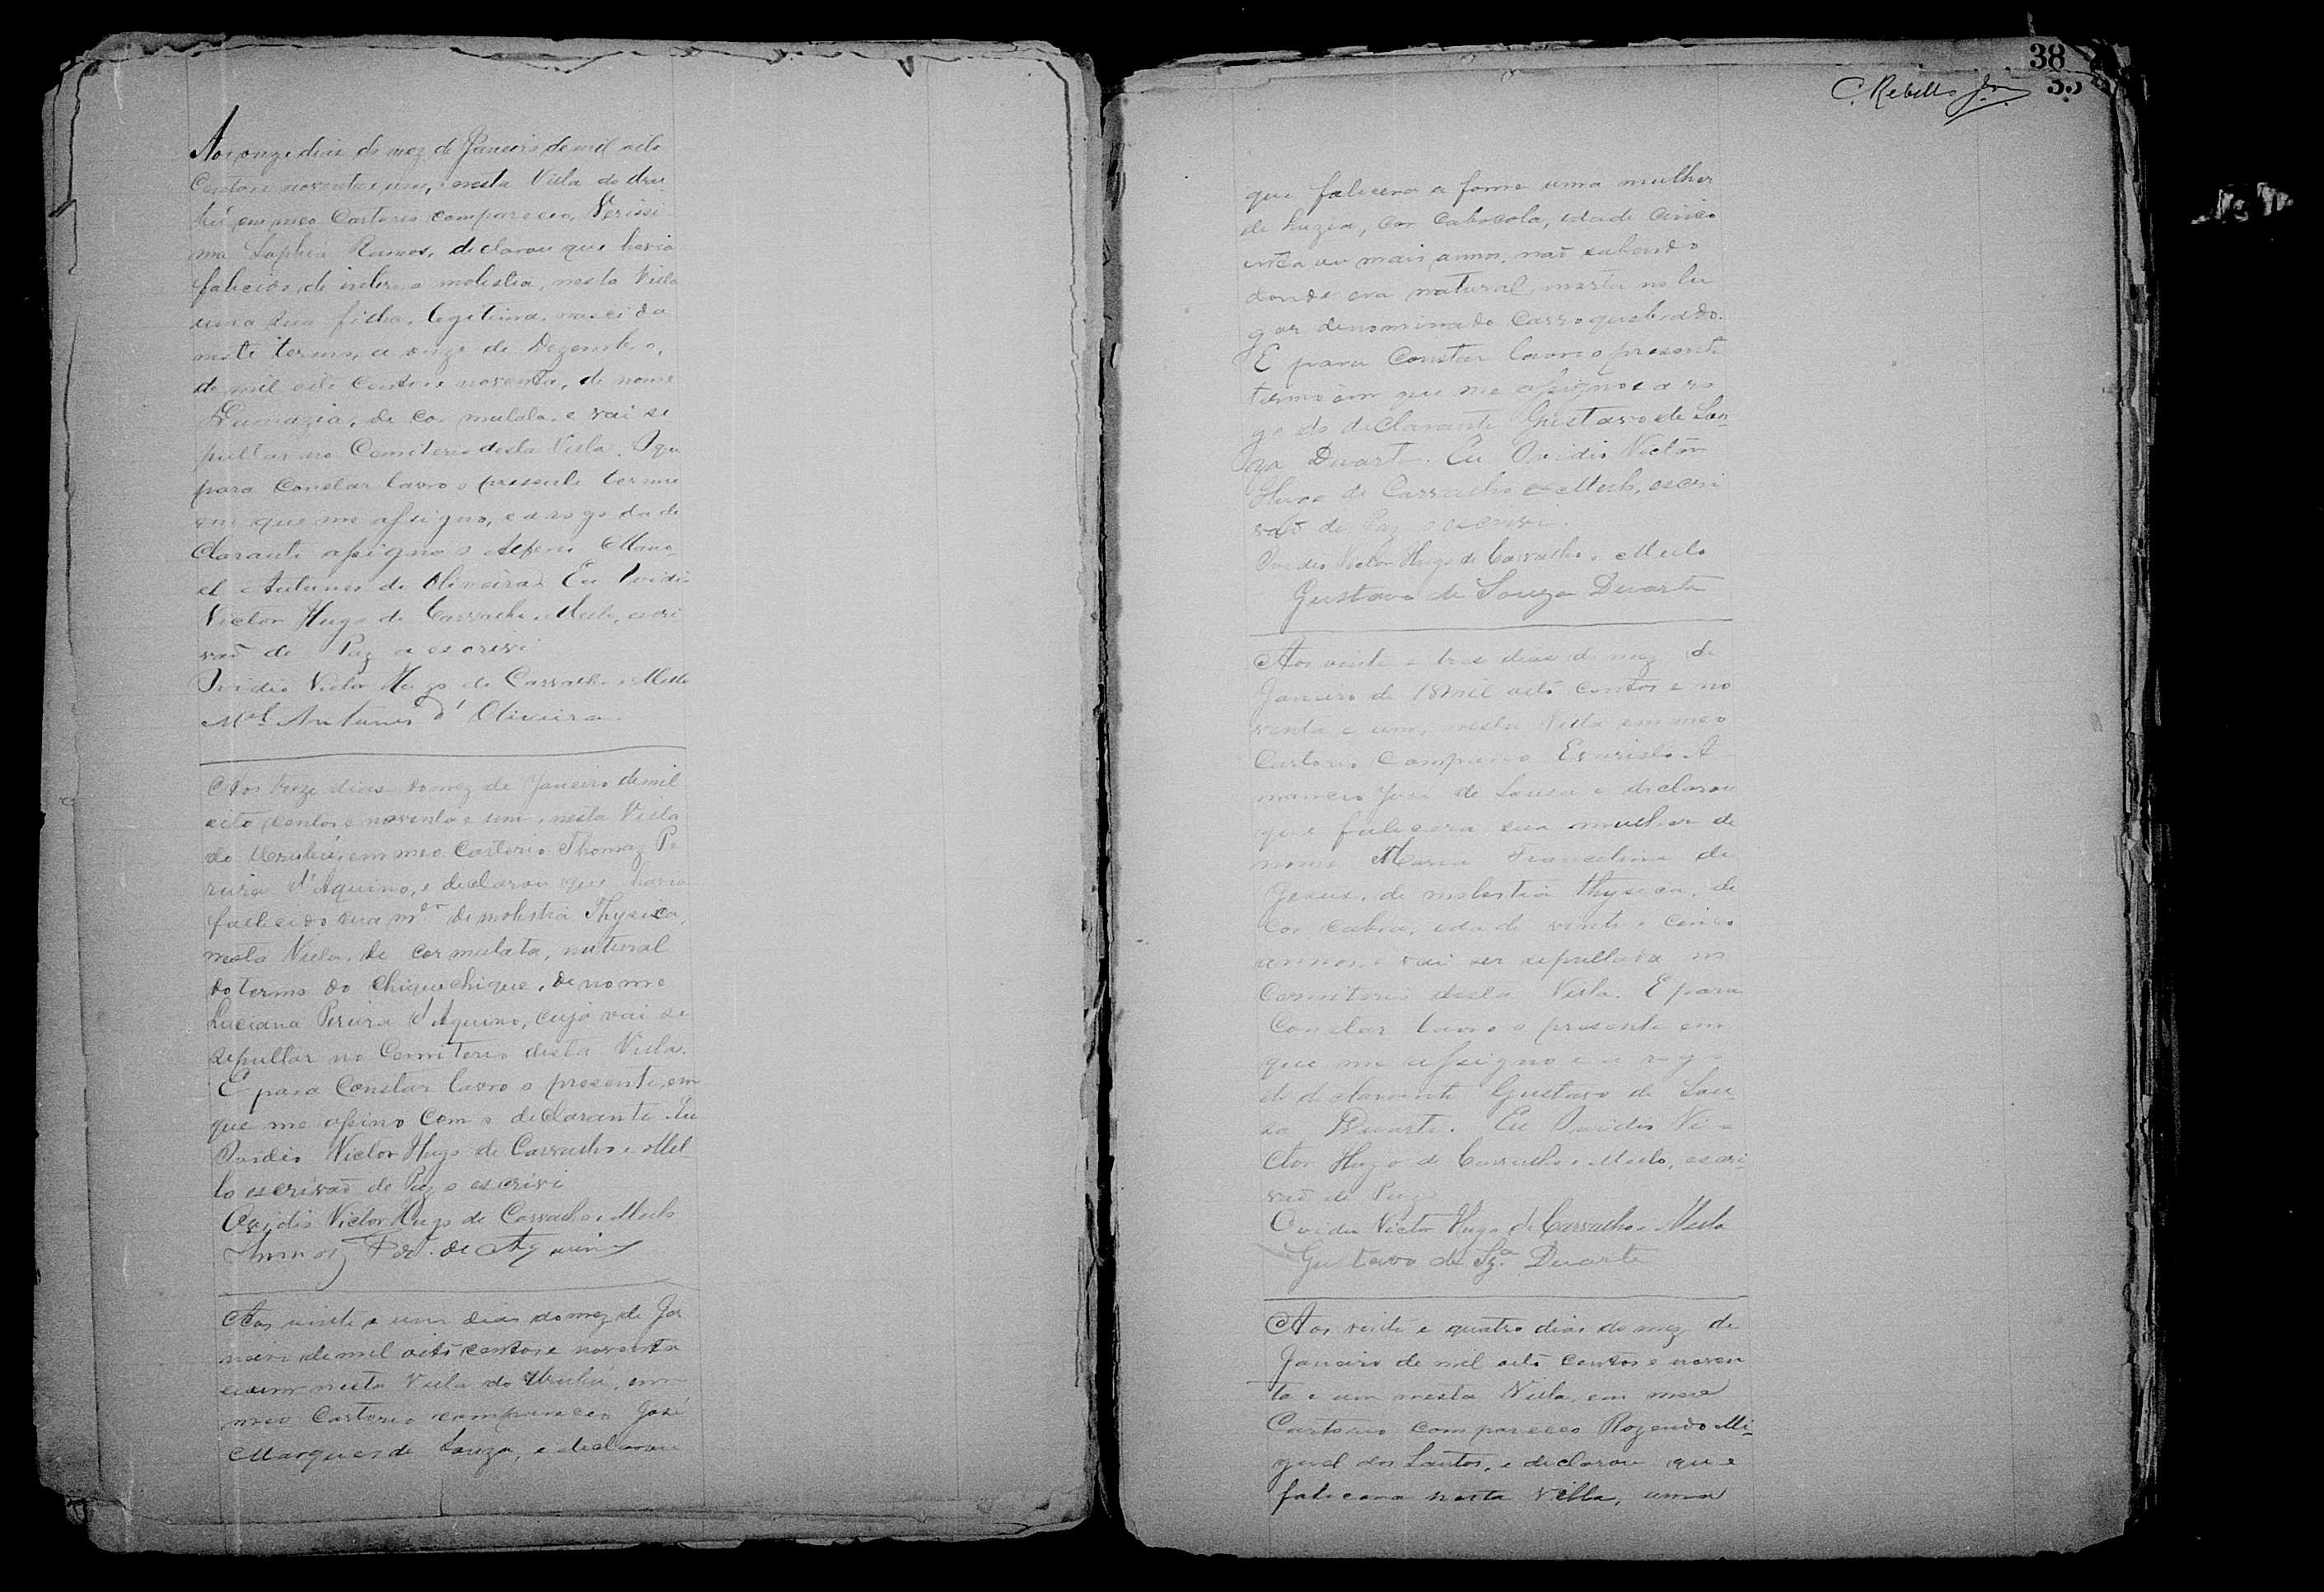 Aos onze dias do mez de Janeiro de mil oito
Centos e noventa e um, nesta Villa do Uru
bú em meo Cartorio compareceo, Verissi
ma Sophia Ramos, declarou que havia
falecido, de interna molestia, nesta Villa
uma sua filha, legitima, nascida
neste termo, a onze de Dezembro,
de mil oito centos e noventa, de nome
de cor mulata, e vai se
pultar no Cemiterio desta Villa. E que
para Constar lavro o presente termo
em que me assigno, e a rogo da de
clarante assigna o Alferes Mano
el Antunes de Oliveira. Eu Ovidio
Victor Hugo de Carvalho e Mello, escri
vaõ de Paz o escrevi
Ovidio Victor Hugo de Carvalho e Mello
Mel Antunes d' Oliveira.
Aos treze dias do mez de Janeiro de mil
oito centos e noventa e um, nesta Villa
do Urubú, em meo Cartorio Thomaz Pe
reira d'Aquino, e declarou que havia
fallecido sua mer de molestia Thysica,
nesta Villa, de cor mulata, natural
do termo do Chiquechique, de nome
Luciana Pereira d'Aquino, cuja vai se
sepultar no Cemiterio desta Villa.
E para Constar lavro o presente, em
que me assino com o declarante. Eu
Ovidio Victor Hugo de Carvalho e Mel
lo escrivaõ de Paz o escrevi
Ovidio Victor Hugo de Carvalho e Mello
Thomaz Per. de Aquino
Aos vinte e um dias do mez de Ja
neiro de mil oito centos e noventa
e um nesta Villa do Urubú, em
meo Cartorio compareceo José
Marques de Souza, e declarou
38
C. Rebello Jor.
que falecera a fome uma mulher
de Luzia, cor Cabocola, idade cinco
enta ou mais annos, naõ sabendo
donde era natural, morta no lu
gar denominado Carro quebrado.
E para Constar lavro o presente
termo em que me assigno e a ro
go do declarante Gustavo de Sou
za Duarte. Eu Ovidio Victor
Hugo de Carvalho e Mello, escri
vaõ de Paz o escrevi.
Ovidio Victor Hugo de Carvalho e Mello
Gustavo de Souza Duarte
Aos vinte e tres dias do mez de
Janeiro de mil oito centos e no
venta e um, nesta Villa em meo
Cartorio Compareceo Evaristo A
mancio José de Sousa e declarou
que falecera sua mulher de
nome Maria Francelina de
Jesus, de molestia thysica, de
cor Cabra, idade vinte e cinco
annos, e vai ser sepultada no
Cemiterio desta Villa. E para
Constar lavro o presente em
que me assigno e a rogo
do declarante Gustavo de Sou
za Duarte. Eu Ovidio Vi=
ctor Hugo de Carvalho e Mello, escri-
vaõ de Paz
Ovidio Victor Hugo de Carvalho e Mello
Gustavo de Sza. Duarte
Aos vinte e quatro dias do mez de
Janeiro de mil oito centos e noven
ta e um nesta Villa, em meo
Cartorio compareceo Rozendo Mi-
guel dos Santos, e declarou que
falecera nesta Villa, uma